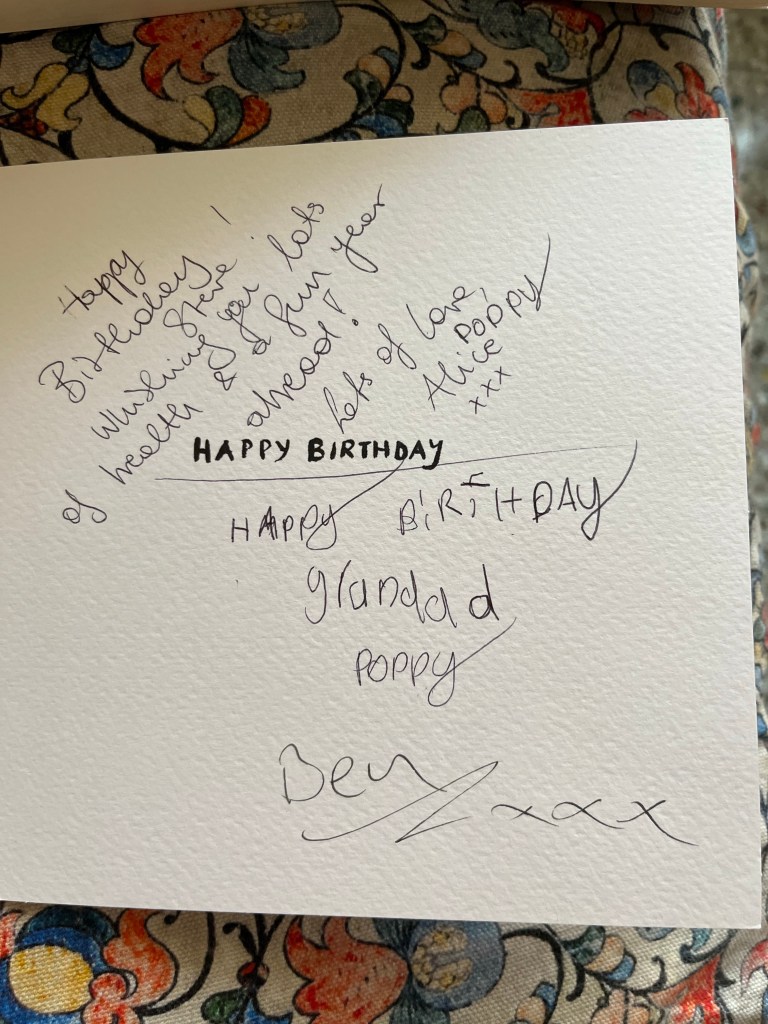 Happy
Birthday!
Steve
Whishing you lots
of health & a fun year
ahead!
Lots of love,
POPPY
Alice
xxx
HAPPY BIRTHDAY
HAPPY BiRTHDAY
grandad
POPPY
Ben xxx